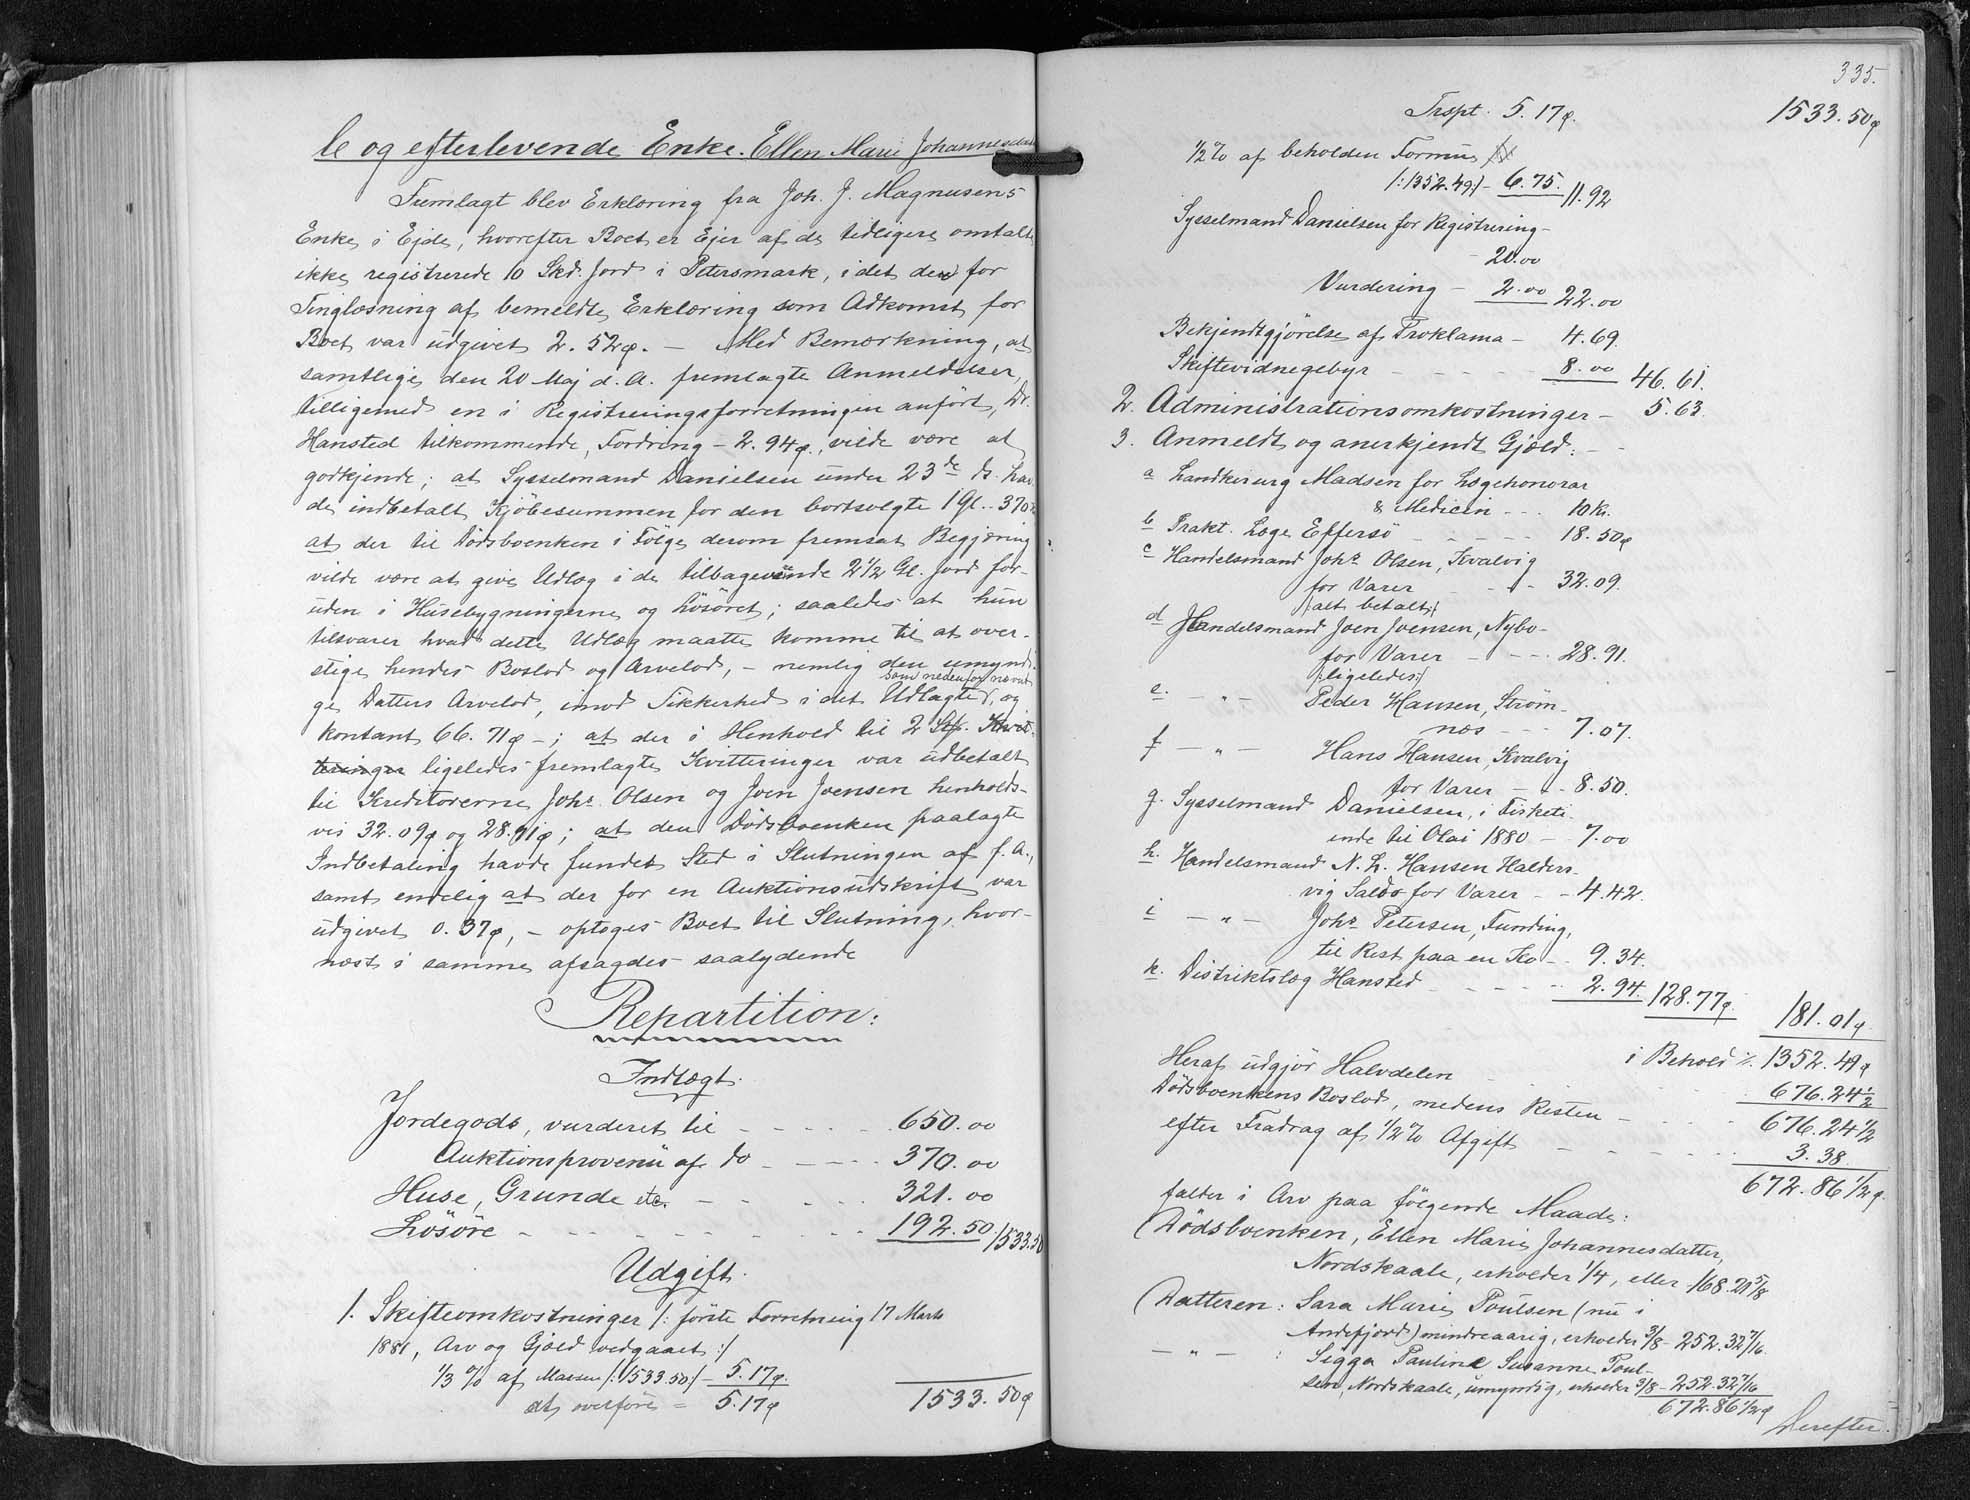 le og efterlevende Enke. Ellen Marie Johannesdat
Fremlagt blev Erklæring fra Joh. J. Magnusens
Enke i Ejde, hvorefter Boet er Ejer af de tidligere omtalte
ikke registrerede 10 Skd. Jord i Petersmark, i det der for
Tinglæsning af bemeldte Erklæring som Adkomst for
Boet var udgivet 2. 52ø. — Med Bemærkning, at
samtlige den 20 Maj d. A. fremlagte Anmeldelser,
tilligemed en i Registreringsforretningen anført, Dr.
Hansted tilkommende, Fordring - 2. 94ø., vilde være at
godkjende; at Sysselmand Danielsen under 23de ds. hav
de indbetalt Kjöbesummen for den bortsolgte 1 Gl. - 370
at der til Dödsboenken i Fölge derom fremsat Begjæring
vilde være at give Udlæg i de tilbageværende 2½ Gl. Jord for-
uden i Husebygningerne og Lösöret; saaledes at hun
tilsvarer hvad dette Udlæg maatte komme til at over-
stige hendes Boslod og Arvelod, - nemlig den umyndi
som nedenfor nævnt
ge Datters Arvelod, imod Sikkerhed i det Udlagte, og
kontant 66. 71ø -; at der i Henhold til 2 Stk. Kvit-
teringer ligeledes fremlagte Kvitteringer var udbetalt
til Kreditorerne Johs. Olsen og Joen Joensen henholds-
vis 32.09ø og 28.91ø; at den Dödsboenken paalagte
Indbetaling havde fundet Sted i Slutningen af f. A.,
samt endelig at der for en Auktionsudskrift var
udgivet 0. 37ø, - optoges Boet til Slutning, hvor-
næst i samme afsagdes saalydende
Repartition:
Indtægt.
Jordegods, vurderet til - - - - - 650. 00
Auktionsprovenü af do - - - - 370. 00
Huse, Grunde etc. - - - - 321. 00
Lösöre - - - - - - - - 192. 50 1533.50
Udgift.
1. Skifteomkostninger /: förste Forretning 17 Marts
1881, Arv og Gjæld vedgaaet :/
1/3 % af Massen /: 1533.50 :/ - 5. 17ø.
at overföre = 5. 17ø 1533. 50ø
335.
Trspt. 5. 17ø. 1533. 50ø
½% af beholden Formue
/: 1352.49 :/ - 6. 75. 11. 92
Sysselmand Danielsen for Registrering -
- 20.00
Vurdering - 2. 00 22. 00
Bekjendtgjörelse af Proklama - 4. 69.
Skiftevidnegebyr - - - - - 8. 00 46. 61.
2. Administrationsomkostninger - 5. 63.
3. Anmeldt og anerkjendt Gjæld: - -
a Landkirurg Madsen for Lægehonorar
& Medicin - - - 10 Kr.
b Prakt. Læge Effersö - - - - - 18. 50ø
c Handelsmand Johs. Olsen, Kvalvig
for Varer - - - 32. 09.
/: alt betalt :/
d Handelsmand Joen Joensen, Nybo -
for Varer - - - - 28. 91.
/: ligeledes :/
e. - " - Peder Hansen, Ström-
næs - - - 7. 07.
f - " - Hans Hansen, Kvalvig
for Varer - - - 8. 50.
g. Sysselmand Danielsen, i Disketi-
ende til Olai 1880 - 7. 00
h. Handelsmand N. L. Hansen Halders-
vig Saldo for Varer - - 4. 42.
i - " - Johs. Petersen, Funding,
til Rest paa en Ko - - 9. 34.
k. Distriktslæg Hansted - - - - - 2. 94. 128. 77ø. 181. 01ø
i Behold /: 1352. 49ø
Heraf udgjör Halvdelen - - - 676. 24½
Dödsboenkens Boslod, medens Resten - - - 676. 24½
efter Fradrag af ½% Afgift - - - - - 3. 38.
672. 86½ø.
falder i Arv paa fölgende Maade:
Dödsboenken, Ellen Marie Johannesdatter,
Nordskaale, erholder 1/4, eller 168. 21 5/8
Datteren: Sara Marie Poulsen (nu i
Andefjord) mindreaarig, erholder 3/8 - 252. 32 7/16.
- " - : Sigga Pauline Susanne Poul-
sen, Nordskaale, umyndig, erholder 3/8 - 252. 32 7/16
672. 86½ø
Derefter